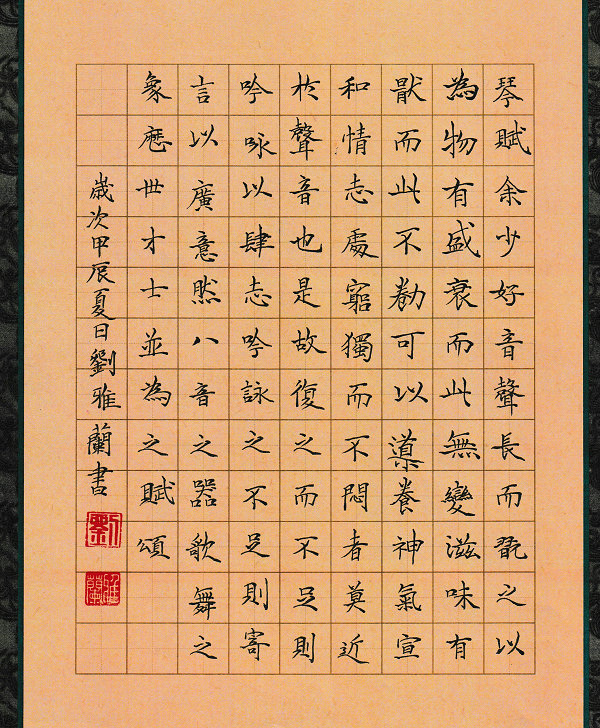 琴賦余少好音聲長而翫之以
為物有盛衰而此無變滋味有
猒而此不勌可以導養神氣宣
和情志處竆獨而不悶者莫近
扵聲音也是故復之而不足則
吟咏以肆志吟詠之不足則寄
言以廣意然八音之器歌舞之
象歷世才士並為之賦頌
歲次甲辰夏日劉雅蘭書
劉
雅蘭